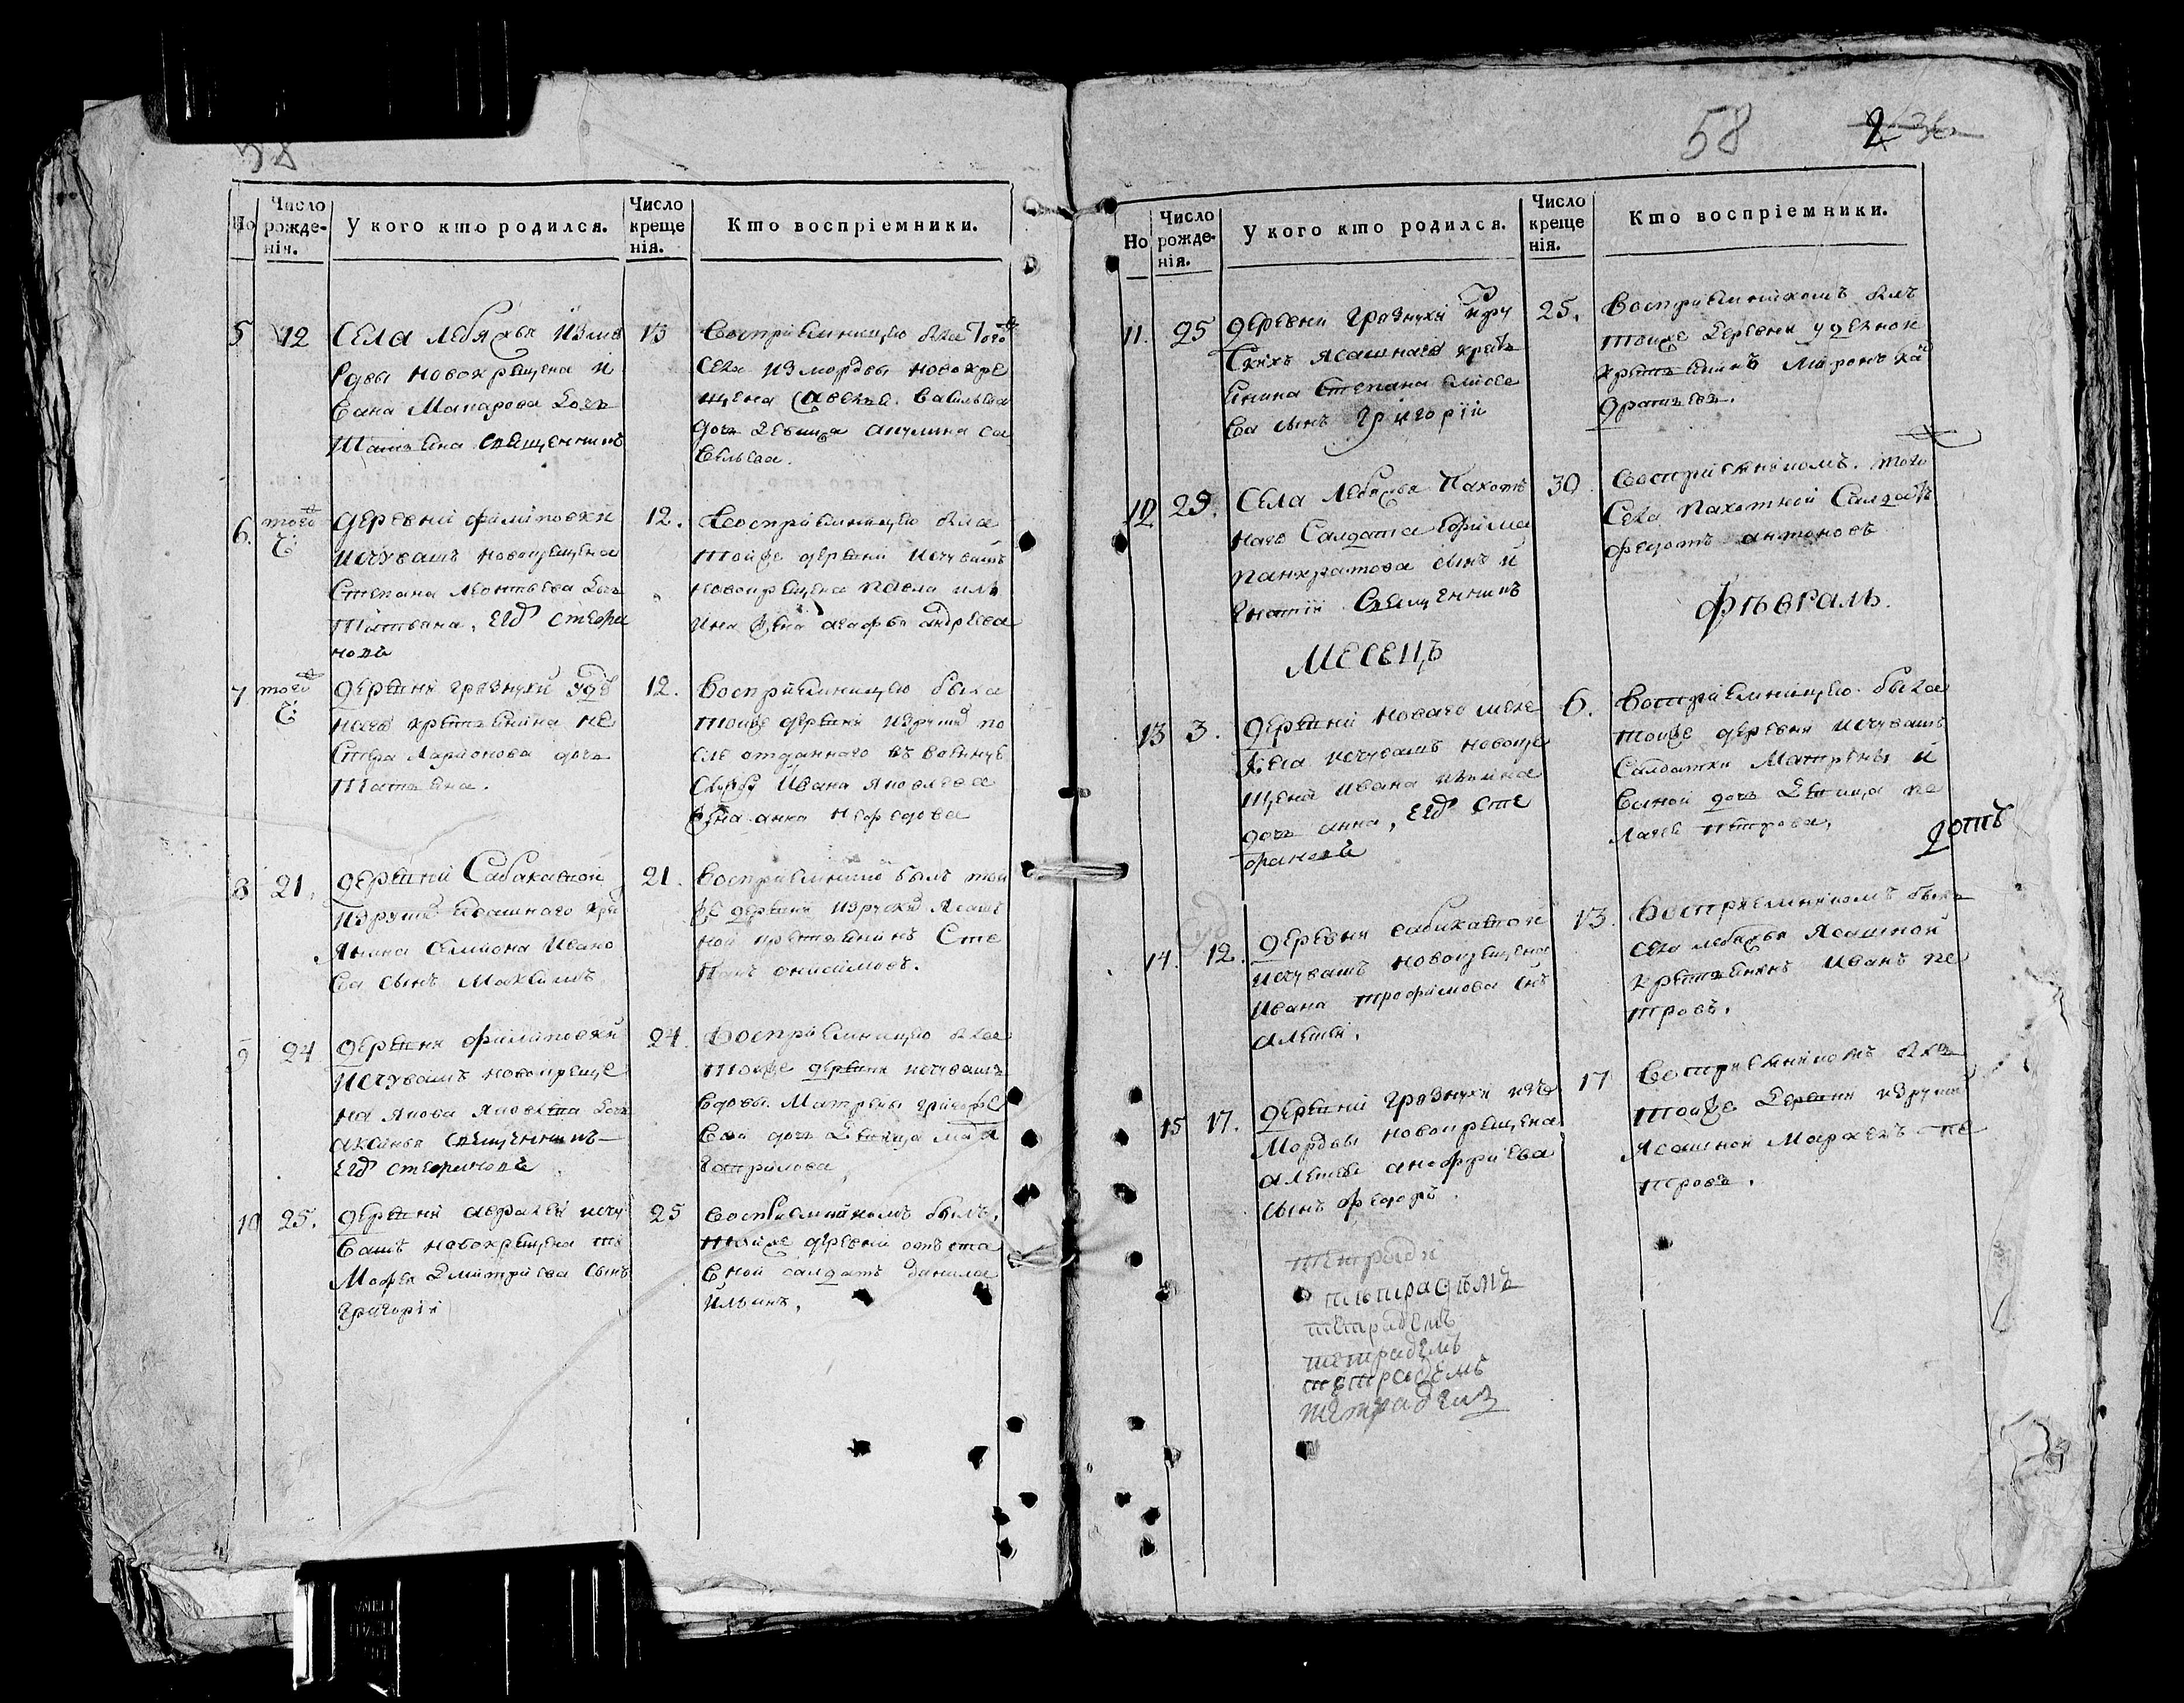 58
Но
Число рожде-нія.
У кого кто родился.
Число креще нія.
Кто воспріемники.
5 12
Села Лебяжья измо
рдвы новокрещена и
вана Макарова дочь
Татьяна священникъ
13
Воспріемницею бла того
села изъ мордвы новокре
щена Савелья
дочь девица акулина са
вельева.
6. того ч
деревни филиповки
исчувашъ новокрещена
Степана Леонтьева дочь
Татьяна,
12.
Воспріемницею бла
тойже деревни исчувашъ
новокрещена павла иль
ина жена агафья андреева
7 того ч
деревни грязнухи удѣ
наго крестьянина не
стера Ларионова дочь
Татьяна.
12.
Воспріемницею была
тойже деревни изруски по
сле отданного въ воинску
службу Ивана яковлева
жена анна нефедова
8 21.
деревни Сабакаевой
изруски ясашного кре
янина Семиона Ивано
ва сынъ Максимъ
21.
Воспріемникъ былъ той
же деревни изруски ясаш
ной крестьянинъ Сте
панъ онисимовъ.
9 24
деревни филиповки
исчувашъ новокреще
на якова яковлева дочь
аксинья священникъ
24.
Воспріемницею бла
тойже деревни исчувашъ
вдовы Матрены григорье
вой дочь девица
Гаврилова
10 25.
деревни авралей исчу
вашъ новокрещена ти
мофея Дмитриева сынъ
григорій
25
воспріемникомъ былъ,
тойже деревни отъста
вной салдатъ данила
Ильинъ.
58 2
Но
Число рожде-нія.
У кого кто родился.
Число креще нія.
Кто воспріемники.
11. 25
деревни грязнухи изру
скихъ ясашнаго кресть
янина Степана елисе
ва сынъ Григорій
25.
Воспріемникомъ блъ
тойже деревни удельной
крестьянинъ Миронъ ка
дратьевъ.
12 29.
Села Лебяжья Пахотъ
наго Салдата Ефима
панкратова сынъ и
гнатій Священникъ
30
воспріемникомъ. того
села пахотной Салдатъ
федотъ антоновъ
Месецъ
Фпъвраль.
13 3.
деревни новаго меле
кеса исчувашъ новокре
щена ивана
дочь анна,
6.
Воспріемницею была
тойже деревни исчувашъ
салдатки Матрены и
вановой дочь девица пе
лагея петрова.
дотъ
14. 12.
деревни сабакаевой
исчувашъ новокрещена
Ивана трофимова снъ
алексей.
13.
Воспріемникомъ былъ
села лебяжья ясашной
крестьянинъ иванъ пе
тровъ.
15 17.
деревни грязнухи изъ
Мордвы новокрещена
алексея анофриева
сынъ федоръ.
17
Воспріемникомъ блъ
тойже деревни изруски
ясашной Маркелъ пе
тровъ.
тетради
тетрадемъ
тетрадемъ
тетрадемъ
тетрадемъ